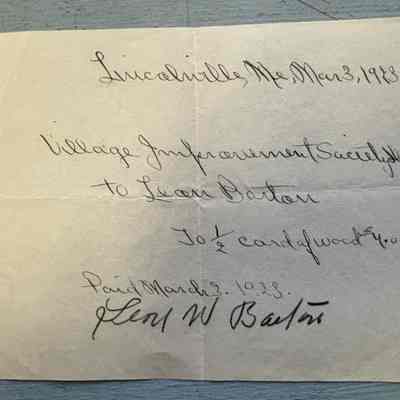 Lincolnville, Me, Mar 3, 1923
Village Improvement Society
to Leon Barton
To 1/2 cord of wood $4.0
Paid March 3. 1923.
Leon W Barton